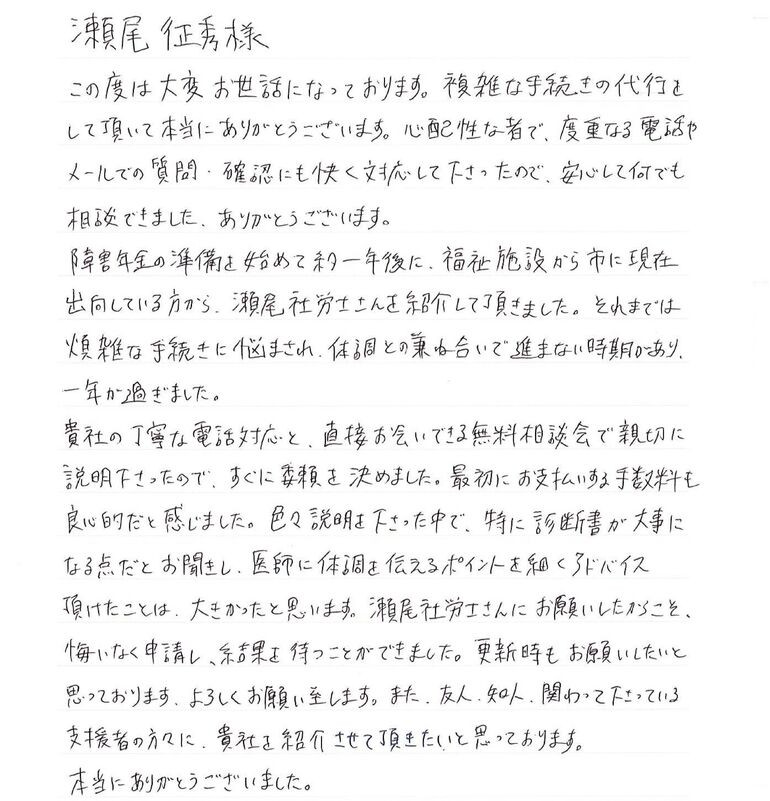 瀬尾 征秀様
この度は大変お世話になっております。複雑な手続きの代行を
して頂いて本当にありがとうございます。心配性な者で、度重なる電話や
メールでの質問・確認にも快く対応して下さったので、安心して何でも
相談できました、ありがとうございます。
障害年金の準備を始めて約一年後に、福祉施設から市に現在
出向している方から、瀬尾社労士さんを紹介して頂きました。それまでは
煩雑な手続きに悩まされ、体調との兼ね合いで進まない時期があり、
一年が過ぎました。
貴社の丁寧な電話対応と、直接お会いできる無料相談会で親切に
説明下さったので、すぐに委頼を決めました。最初にお支払いする手数料も
良心的だと感じました。色々説明を下さった中で、特に診断書が大事に
なる点だとお聞きし、医師に体調を伝えるポイントを細くアドバイス
頂けたことは、大きかったと思います。瀬尾社労士さんにお願いしたからこそ、
悔いなく申請し、結果を待つことができました。更新時もお願いしたいと
思っております、よろしくお願い至します。また、友人、知人、関わって下さっている
支援者の方々に、貴社を紹介させて頂きたいと思っております。
本当にありがとうございました。